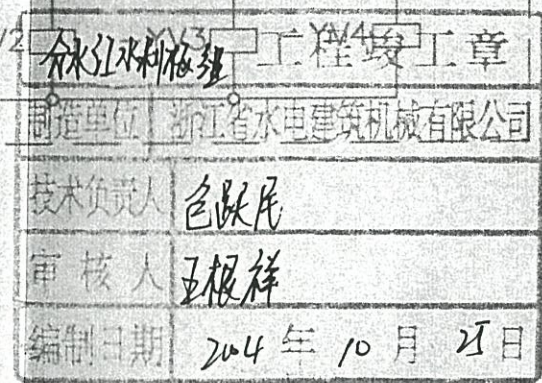 YV3 YV4
分水江水利枢纽 工程竣工章
制造单位 浙江省水电建筑机械有限公司
技术负责人 包跃民
审核人 王根祥
编制日期 2004 年 10 月 25 日